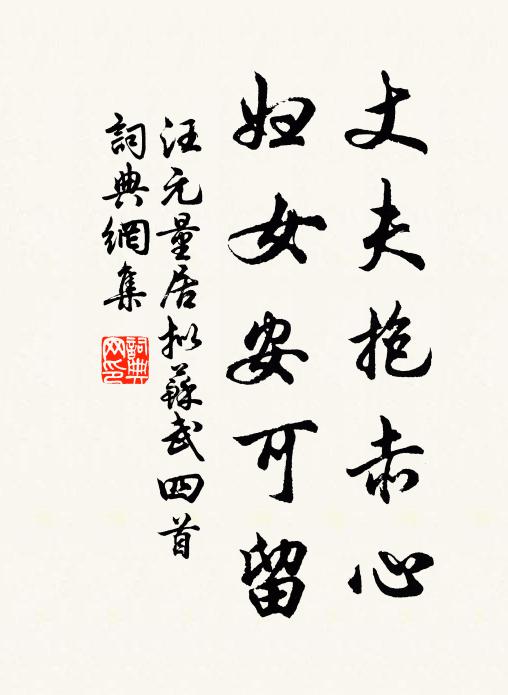 丈夫抱赤心
妇女安可留
汪元量居拟蘇武四首
詞典網集
詞典網印